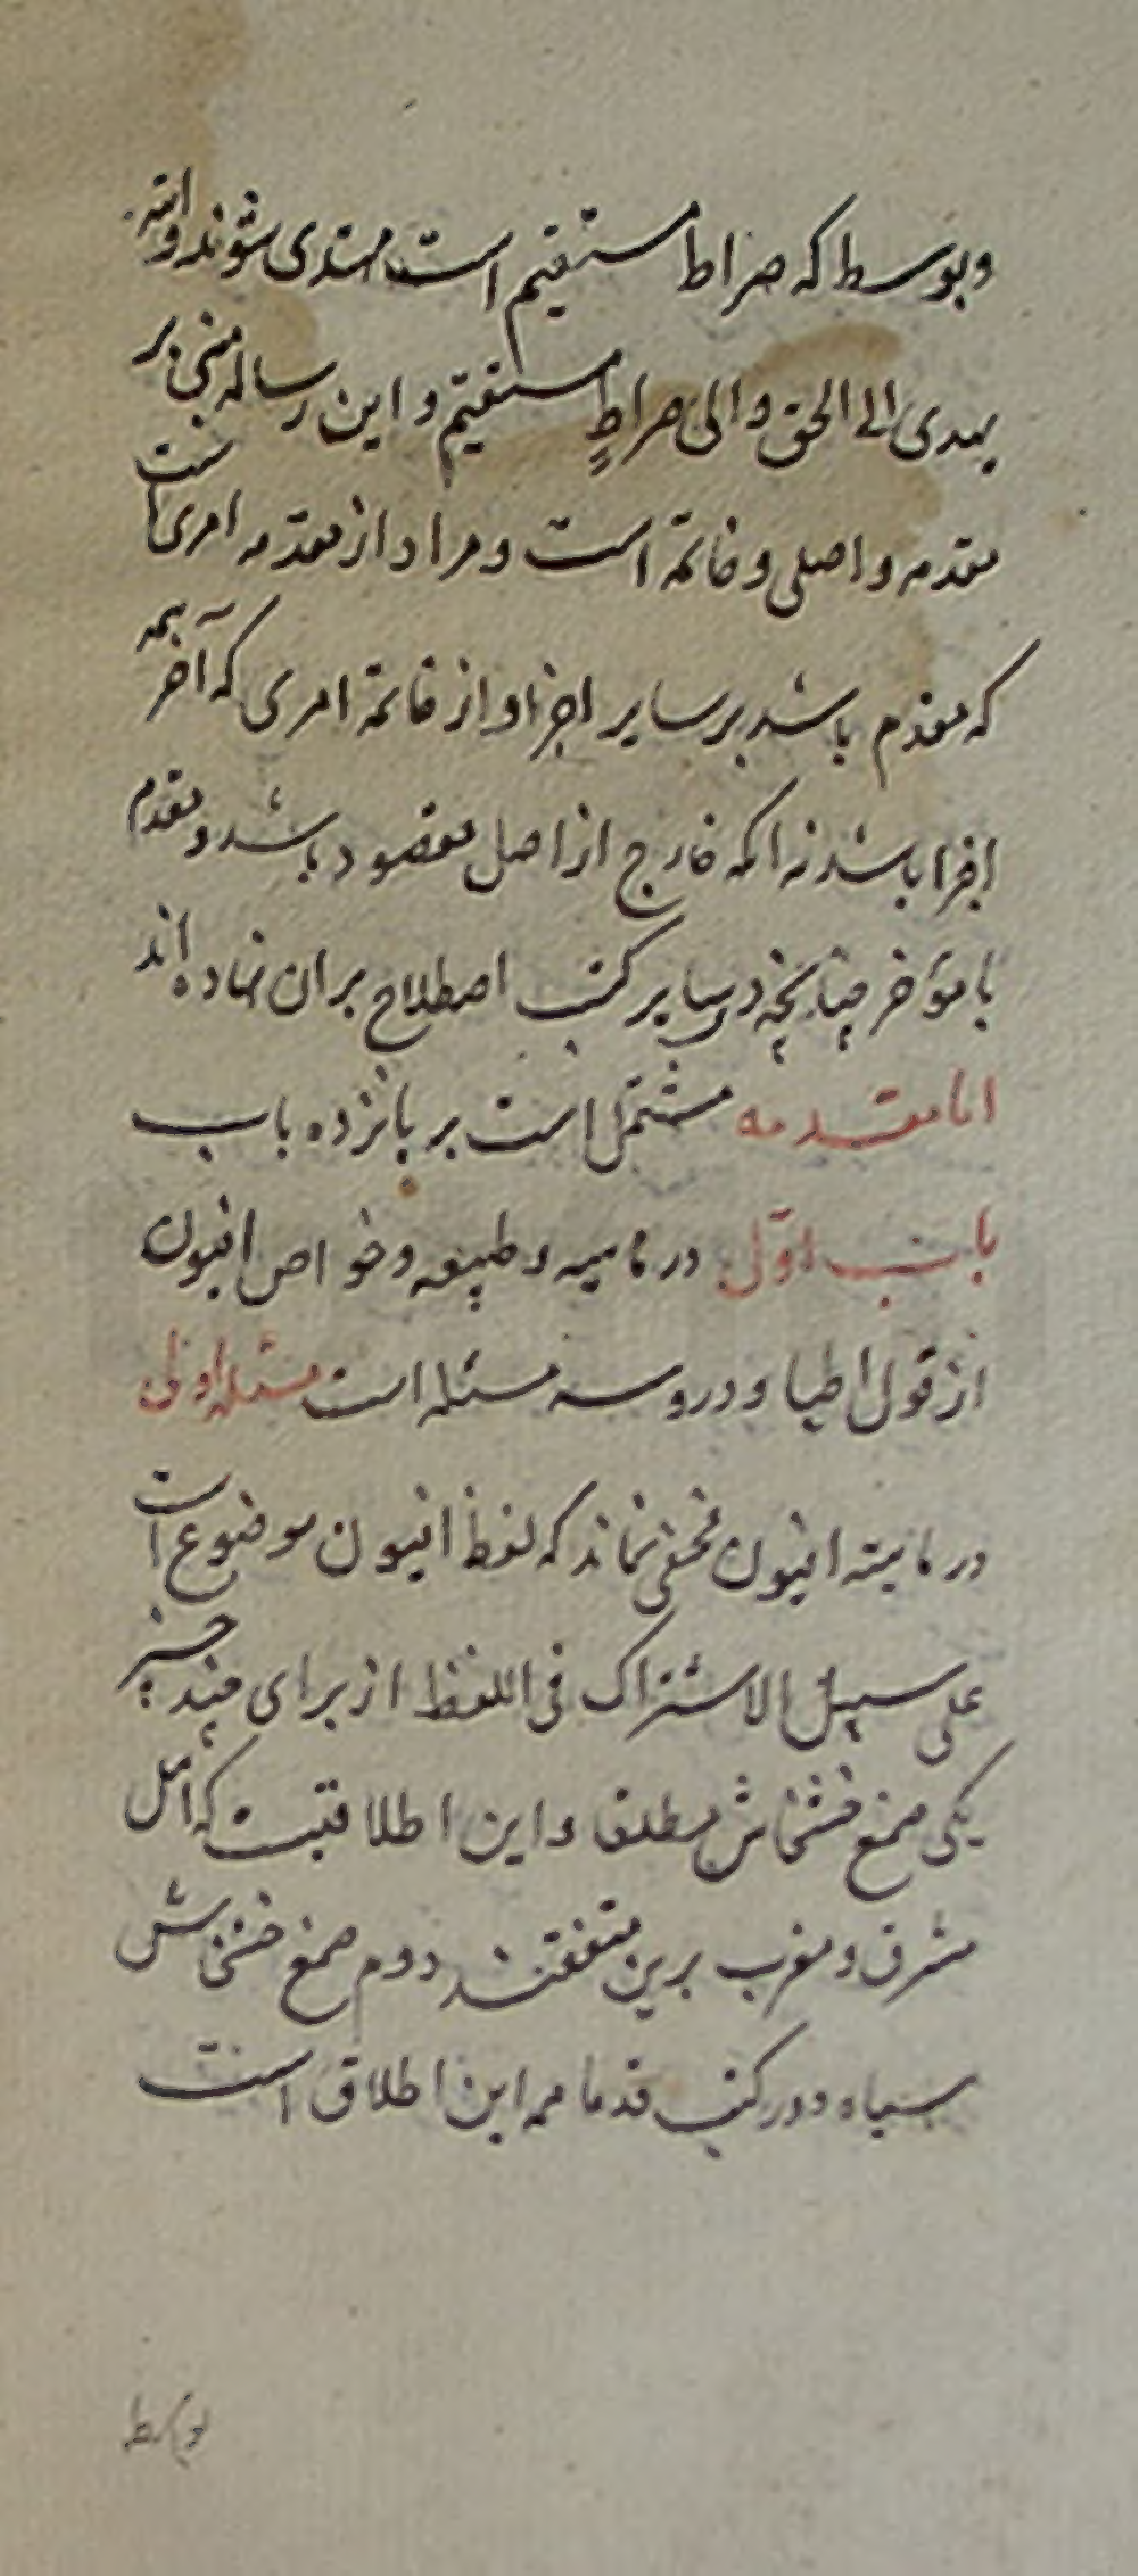 وبوسط که صراط مستقیم است مهتدی شوند والله
یهدی الی الحق والی صراطٍ مستقیم و این رساله مبنی بر
مقدمه و اصلی و خاتمة است و مراد از مقدمه امری است
که مقدم باشد بر سایر اجزا و از خاتمة امری که آخر همه
اجزا باشد نه آنکه خارج از اصل مقصود باشد و مقدم
یا مؤخر چنانچه در سایر کتب اصطلاح بران نهاده اند
اما مقدمه مشتمل است بر پانزده باب
باب اوّل در ماهیه و طبیعه و خواص افیون
از قول اطبا و درو سه مسئله است مسئله اولی
در ماهیته افیون مخفی نماند که لفظ افیون موضوع است
علی سبیل الاشتراک فی اللفظ از برای چند چیز
یکی صمغ خشخاش مطلقا و این اطلاقیست که اهل
مشرق و مغرب برین متفقند دوم صمغ خشخاش
سیاه و در کتب قدما همه این اطلاق است